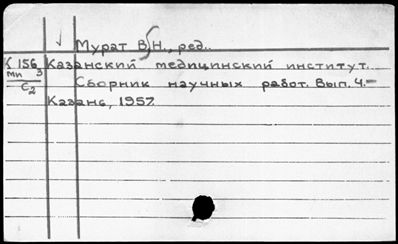 Мурат В.Н., ред..
К 156 Казанский медицинский институт.
Ми 3
С2 Сборник научных работ. Вып. 4.-
Казань, 1957.